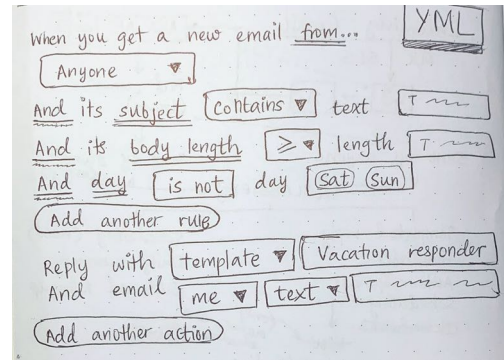 YML
When you get a new email from...
Anyone
And its subject contains text T
And its body length ≥ length T
And day is not day Sat Sun
Add another rule
Reply with template Vacation responder
And email me text T
Add another action